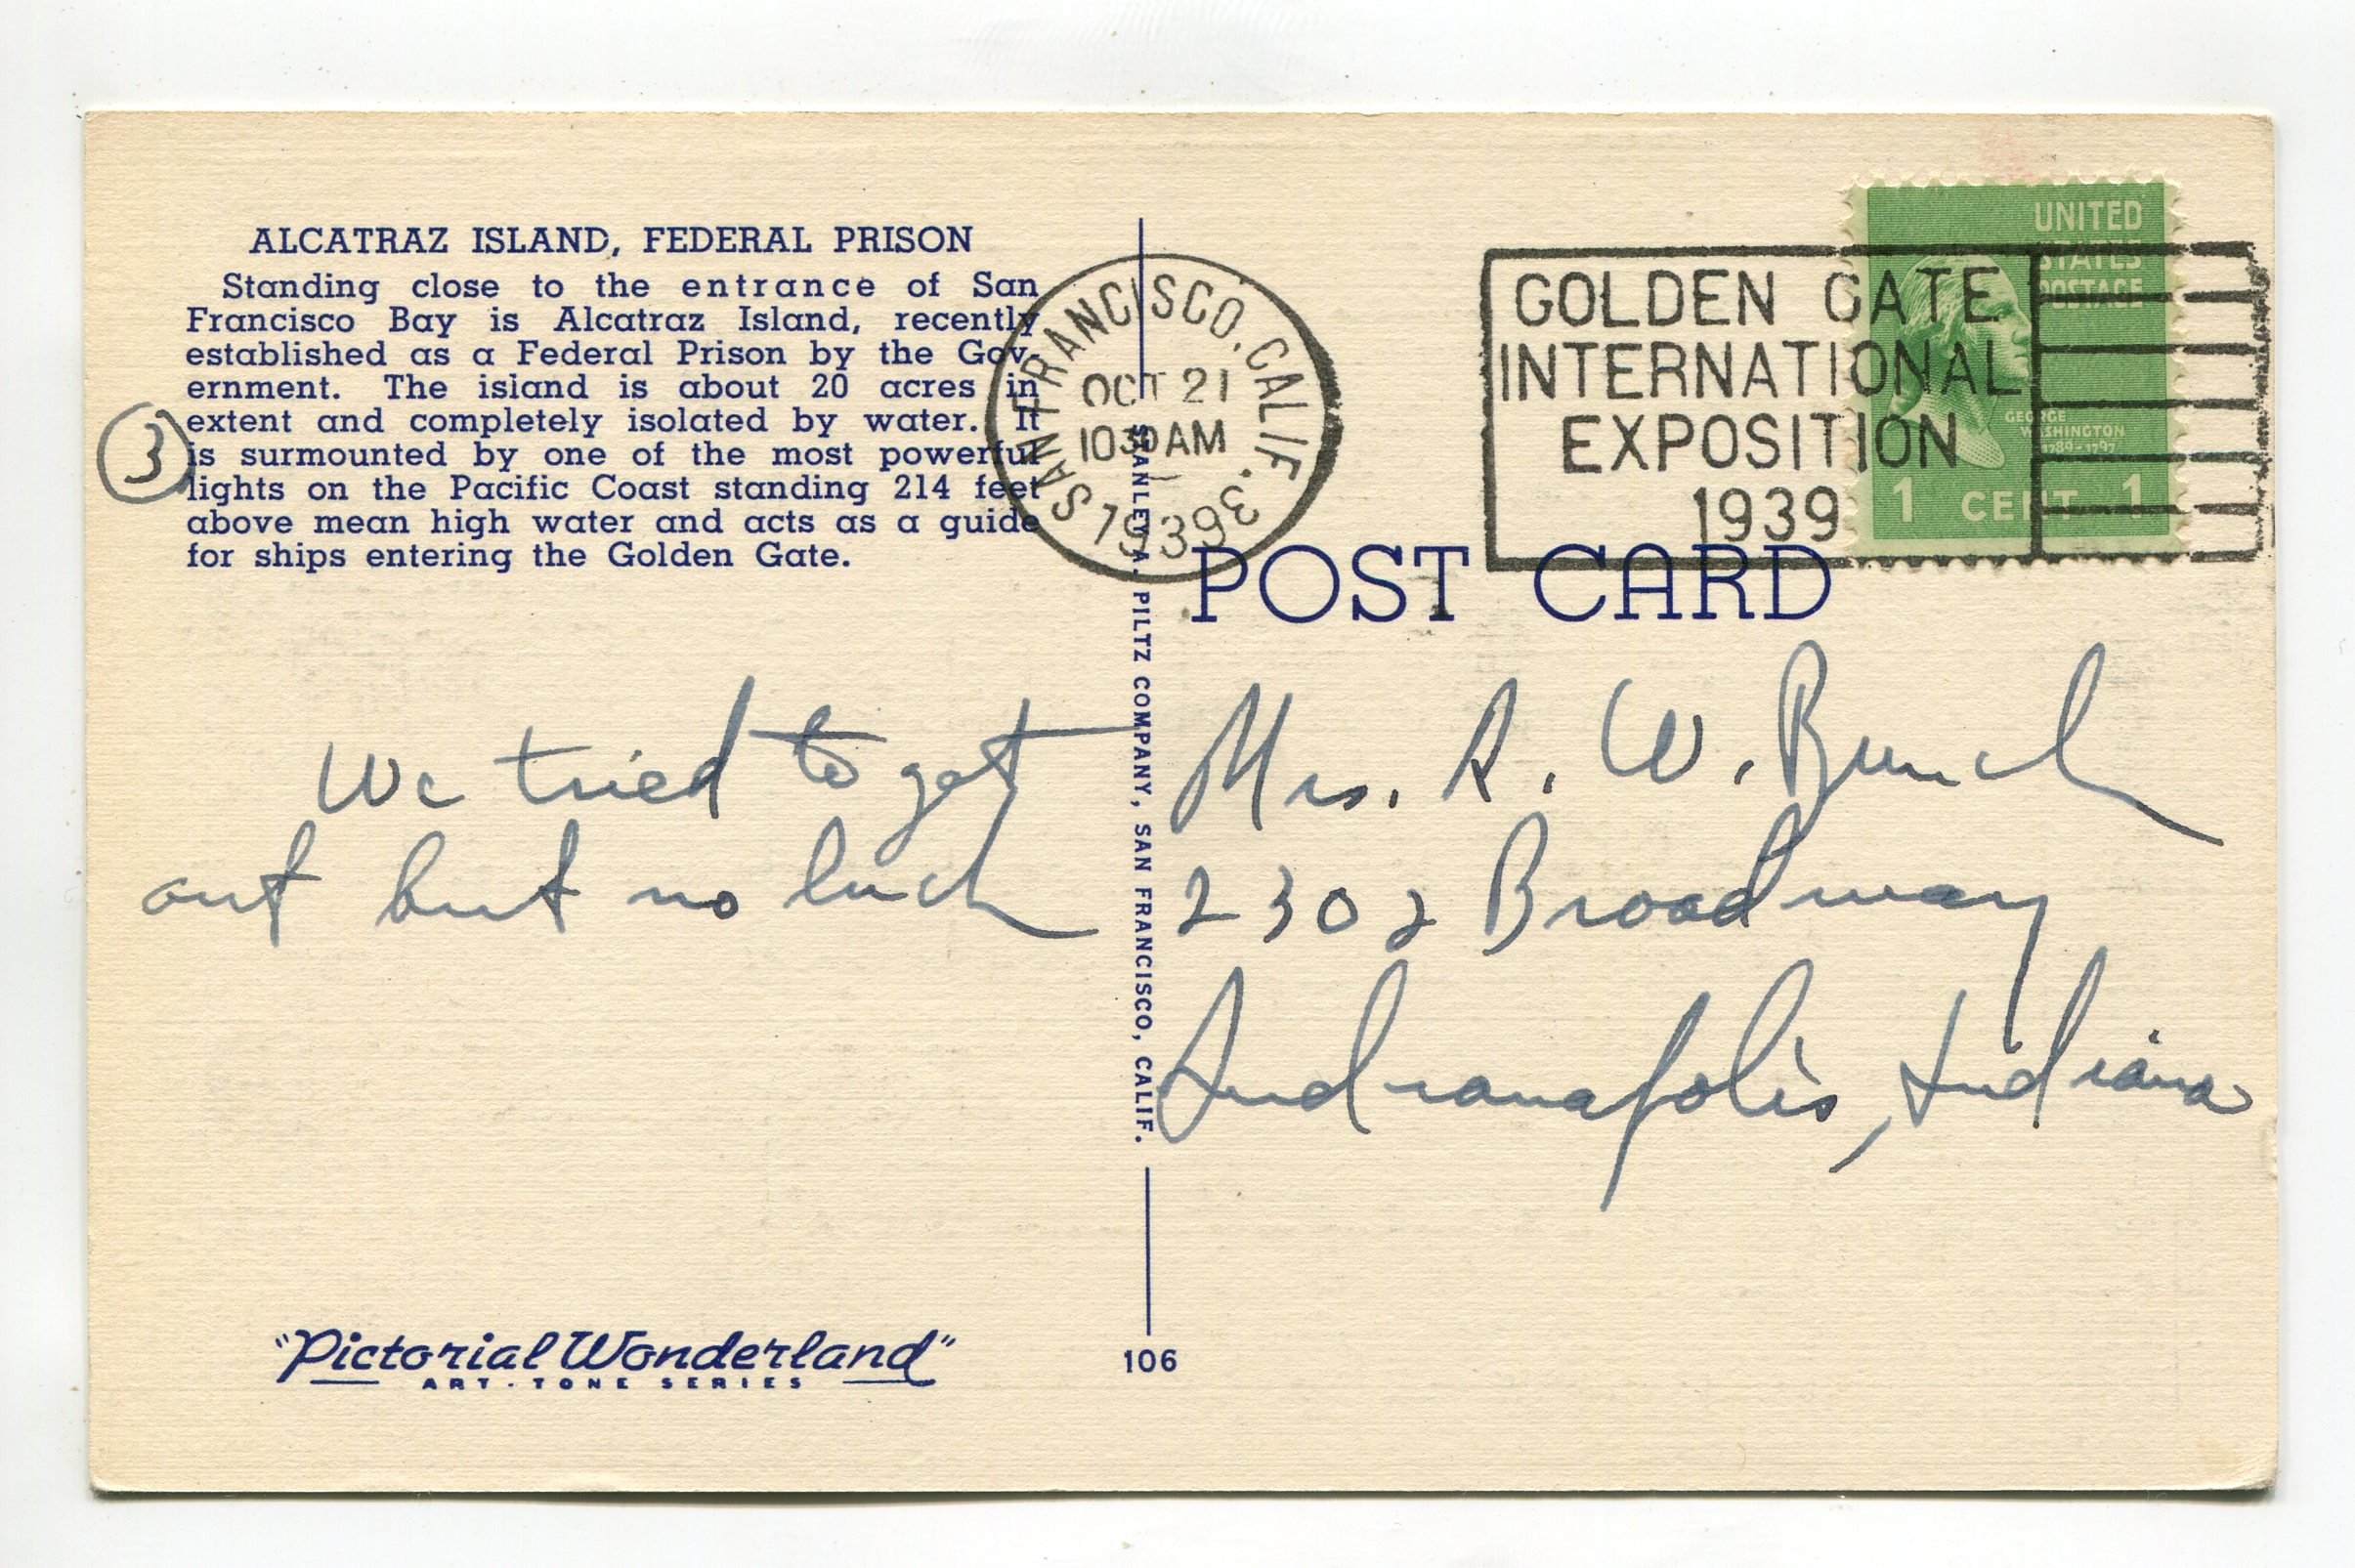 ALCATRAZ ISLAND, FEDERAL PRISON
Standing close to the entrance of San
Francisco Bay is Alcatraz Island, recently
established as a Federal Prison by the Gov-
ernment. The island is about 20 acres in
extent and completely isolated by water. It
is surmounted by one of the most powerful
lights on the Pacific Coast standing 214 feet
above mean high water and acts as a guide
for ships entering the Golden Gate.
3
We tried to get
out but no luck
"Pictorial Wonderland"
ART-TONE SERIES
STANLEY A. PILTZ COMPANY, SAN FRANCISCO, CALIF.
106
SAN FRANCISCO, CALIF. 3
OCT 21
1030 AM
1939
GOLDEN GATE
INTERNATIONAL
EXPOSITION
1939
UNITED
STATES
POSTAGE
GEORGE
WASHINGTON
1789-1797
1 CENT 1
POST CARD
Mrs. R. W. Bunch
2302 Broadway
Indianapolis, Indiana